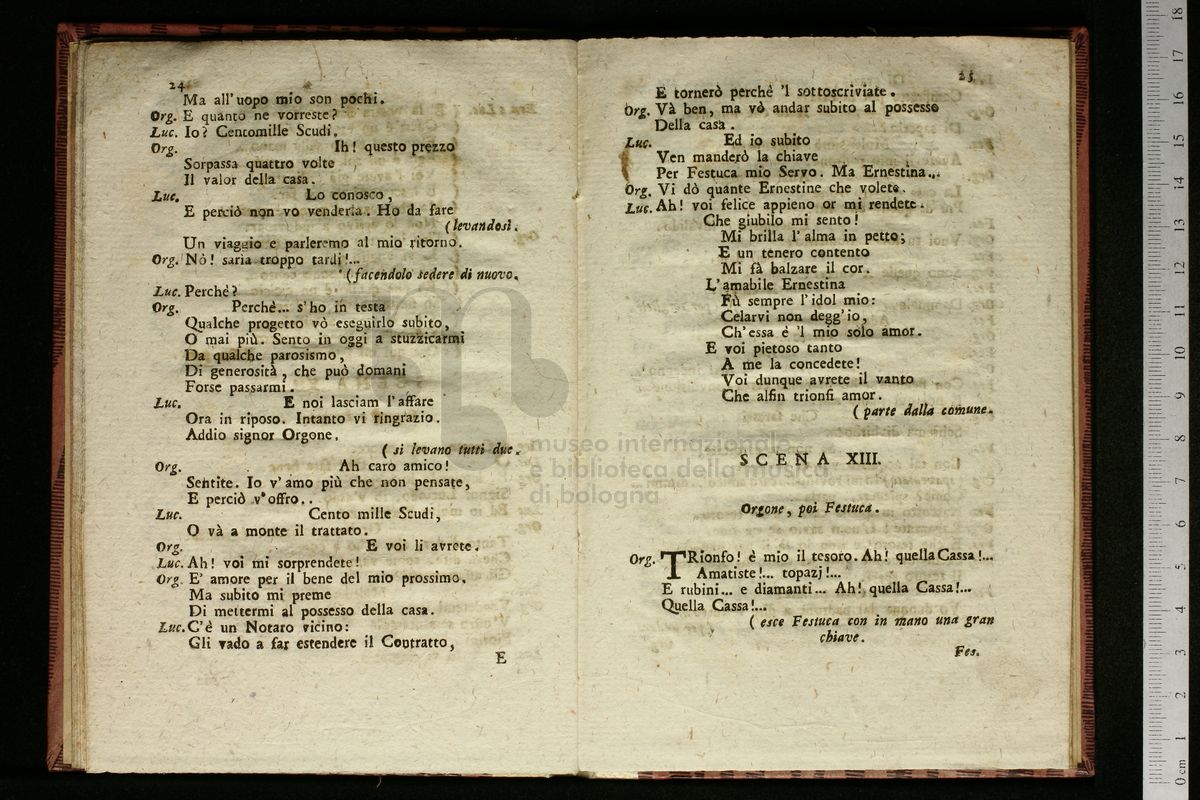 24
Ma all'uopo mio son pochi.
Org. E quanto ne vorreste?
Luc. Io? Centomille Scudi.
Org. Ih! questo prezzo
Sorpassa quattro volte
Il valor della casa.
Luc. Lo conosco,
E perciò non vo venderla. Ho da fare
(levandosi.
Un viaggio e parleremo al mio ritorno.
Org. Nò! saria troppo tardi!...
(facendolo sedere di nuovo.
Luc. Perchè?
Org. Perchè... s'ho in testa
Qualche progetto vò eseguirlo subito,
O mai più. Sento in oggi a stuzzicarmi
Da qualche parosismo,
Di generosità, che può domani
Forse passarmi.
Luc. E noi lasciam l'affare
Ora in riposo. Intanto vi ringrazio.
Addio signor Orgone.
(si levano tutti due.
Org. Ah caro amico!
Sentite. Io v'amo più che non pensate,
E perciò v'offro..
Luc. Cento mille Scudi,
O và a monte il trattato.
Org. E voi li avrete.
Luc. Ah! voi mi sorprendete!
Org. E' amore per il bene del mio prossimo.
Ma subito mi preme
Di mettermi al possesso della casa.
Luc. C'è un Notaro vicino:
Gli vado a far estendere il Contratto,
E
25
E tornerò perchè 'l sottoscriviate.
Org. Và ben, ma vò andar subito al possesso
Della casa.
Luc. Ed io subito
Ven manderò la chiave
Per Festuca mio Servo. Ma Ernestina...
Org. Vi dò quante Ernestine che volete.
Luc. Ah! voi felice appieno or mi rendete.
Che giubilo mi sento!
Mi brilla l'alma in petto;
E un tenero contento
Mi fà balzare il cor.
L'amabile Ernestina
Fù sempre l'idol mio:
Celarvi non degg'io,
Ch'essa è 'l mio solo amor.
E voi pietoso tanto
A me la concedete!
Voi dunque avrete il vanto
Che alfin trionfi amor.
(parte dalla comune.
SCENA XIII.
Orgone, poi Festuca.
Org. TRionfo! è mio il tesoro. Ah! quella Cassa!...
Amatiste!... topazj!...
E rubini... e diamanti... Ah! quella Cassa!...
Quella Cassa!...
(esce Festuca con in mano una gran
chiave.
Fes.
museo internazionale
e biblioteca della musica
di bologna
0 cm 1 2 3 4 5 6 7 8 9 10 11 12 13 14 15 16 17 18